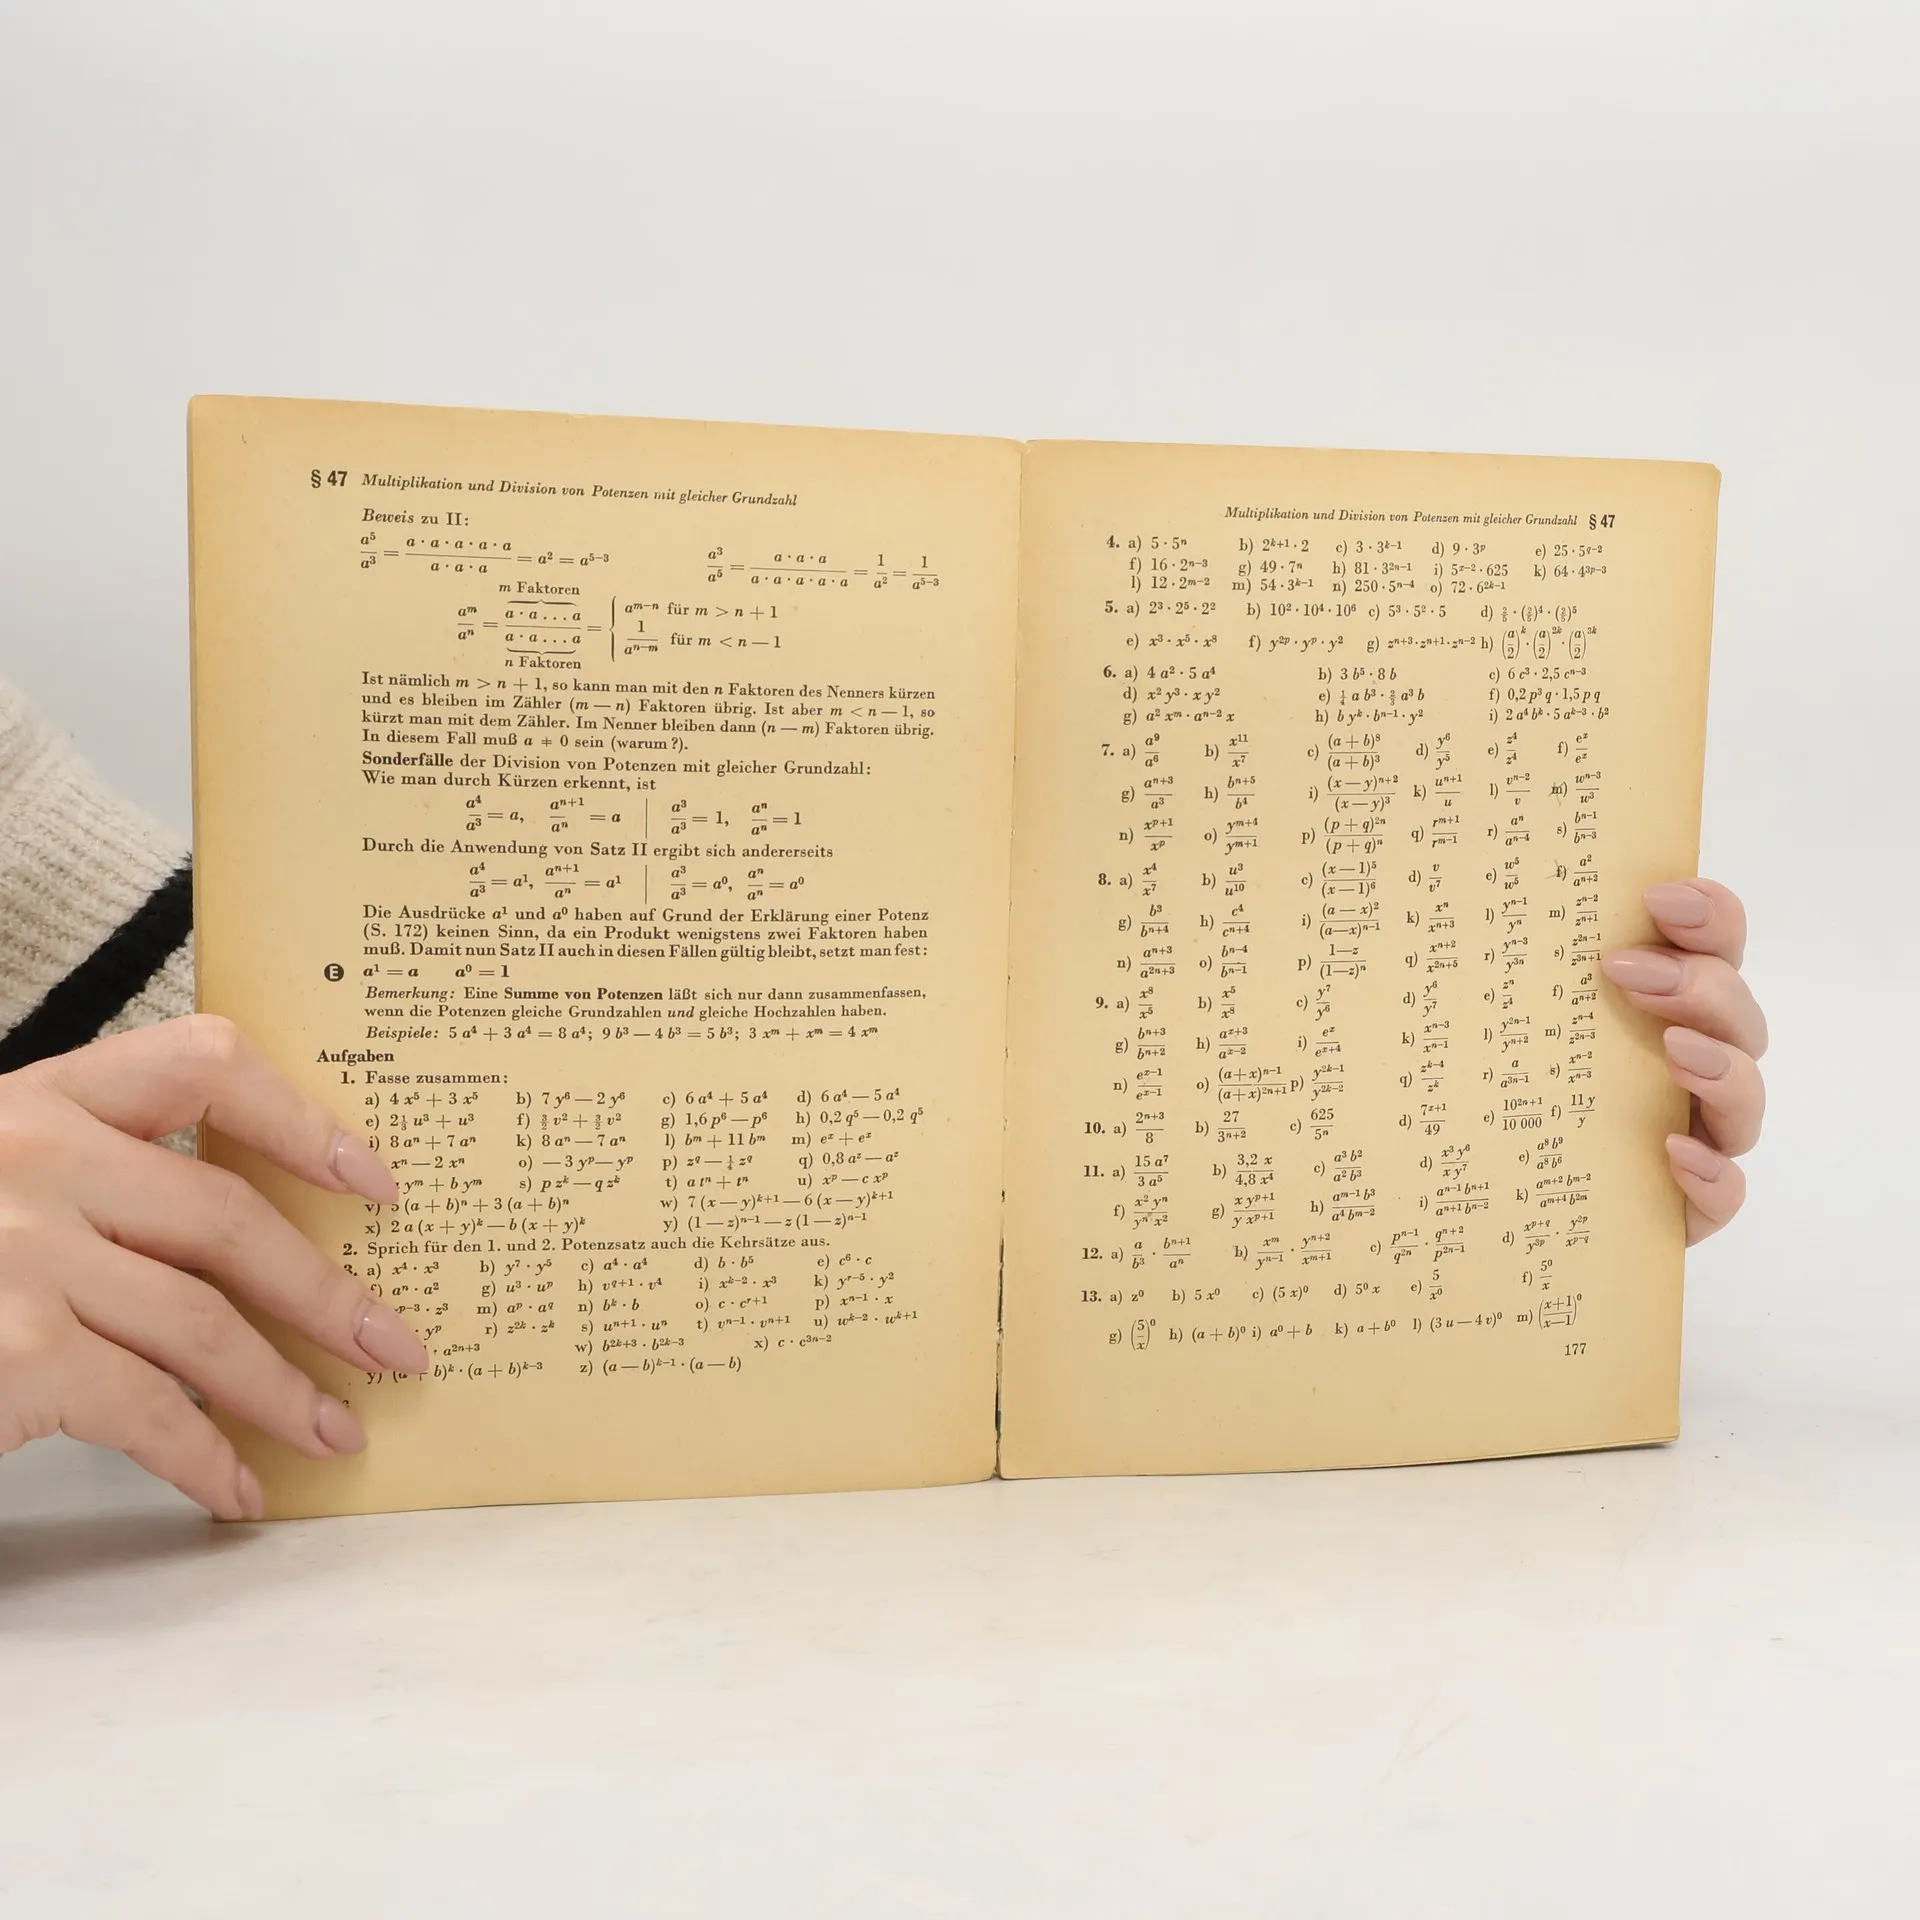 § 47 Multiplikation und Division von Potenzen mit gleicher Grundzahl
Beweis zu II:
a⁵/a³ = (a · a · a · a · a)/(a · a · a) = a² = a⁵⁻³    a³/a⁵ = (a · a · a)/(a · a · a · a · a) = 1/a² = 1/a⁵⁻³
m Faktoren
aᵐ/aⁿ = (a · a ... a)/(a · a ... a) = { aᵐ⁻ⁿ für m > n + 1
1/aⁿ⁻ᵐ für m < n — 1
n Faktoren
Ist nämlich m > n + 1, so kann man mit den n Faktoren des Nenners kürzen
und es bleiben im Zähler (m — n) Faktoren übrig. Ist aber m < n — 1, so
kürzt man mit dem Zähler. Im Nenner bleiben dann (n — m) Faktoren übrig.
In diesem Fall muß a ≠ 0 sein (warum?).
Sonderfälle der Division von Potenzen mit gleicher Grundzahl:
Wie man durch Kürzen erkennt, ist
a⁴/a³ = a, aⁿ⁺¹/aⁿ = a | a³/a³ = 1, aⁿ/aⁿ = 1
Durch die Anwendung von Satz II ergibt sich andererseits
a⁴/a³ = a¹, aⁿ⁺¹/aⁿ = a¹ | a³/a³ = a⁰, aⁿ/aⁿ = a⁰
Die Ausdrücke a¹ und a⁰ haben auf Grund der Erklärung einer Potenz
(S. 172) keinen Sinn, da ein Produkt wenigstens zwei Faktoren haben
muß. Damit nun Satz II auch in diesen Fällen gültig bleibt, setzt man fest:
E a¹ = a a⁰ = 1
Bemerkung: Eine Summe von Potenzen läßt sich nur dann zusammenfassen,
wenn die Potenzen gleiche Grundzahlen und gleiche Hochzahlen haben.
Beispiele: 5 a⁴ + 3 a⁴ = 8 a⁴; 9 b³ — 4 b³ = 5 b³; 3 xᵐ + xᵐ = 4 xᵐ
Aufgaben
1. Fasse zusammen:
a) 4 x⁵ + 3 x⁵ b) 7 y⁶ — 2 y⁶ c) 6 a⁴ + 5 a⁴ d) 6 a⁴ — 5 a⁴
e) 2⅓ u³ + u³ f) v² + v² g) 1,6 p⁶ — p⁶ h) 0,2 q⁵ — 0,2 q⁵
i) 8 aⁿ + 7 aⁿ k) 8 aⁿ — 7 aⁿ l) bᵐ + 11 bᵐ m) eˣ + eˣ
xⁿ — 2 xⁿ o) — 3 yᵖ — yᵖ p) z^q — ¼ z^q q) 0,8 aᶻ — aᶻ
yᵐ + b yᵐ s) p zᵏ — q zᵏ t) a tⁿ + tⁿ u) xᵖ — c xᵖ
v) 5 (a + b)ⁿ + 3 (a + b)ⁿ w) 7 (x — y)ᵏ⁺¹ — 6 (x — y)ᵏ⁺¹
x) 2 a (x + y)ᵏ — b (x + y)ᵏ y) (1 — z)ⁿ⁻¹ — z (1 — z)ⁿ⁻¹
2. Sprich für den 1. und 2. Potenzsatz auch die Kehrsätze aus.
3. a) x⁴ · x³ b) y⁷ · y⁵ c) a⁴ · a⁴ d) b · b⁵ e) c⁶ · c
f) aⁿ · a² g) u³ · uᵖ h) v^(q+1) · v⁴ i) xᵏ⁻² · x³ k) yʳ⁻⁵ · y²
p⁻³ · z³ m) aᵖ · a^q n) bᵏ · b o) c · cʳ⁺¹ p) xⁿ⁻¹ · x
· yᵖ r) z²ᵏ · zᵏ s) uⁿ⁺¹ · uⁿ t) vⁿ⁻¹ · vⁿ⁺¹ u) wᵏ⁻² · wᵏ⁺¹
· a²ⁿ⁺³ w) b²ᵏ⁺³ · b²ᵏ⁻³ x) c · c³ⁿ⁻²
y) (a + b)ᵏ · (a + b)ᵏ⁻³ z) (a — b)ᵏ⁻¹ · (a — b)
Multiplikation und Division von Potenzen mit gleicher Grundzahl § 47
4. a) 5 · 5ⁿ b) 2ᵏ⁺¹ · 2 c) 3 · 3ᵏ⁻¹ d) 9 · 3ᵖ e) 25 · 5^(q−2)
f) 16 · 2ⁿ⁻³ g) 49 · 7ⁿ h) 81 · 3²ⁿ⁻¹ i) 5ˣ⁻² · 625 k) 64 · 4³ᵖ⁻³
l) 12 · 2ᵐ⁻² m) 54 · 3ᵏ⁻¹ n) 250 · 5ⁿ⁻⁴ o) 72 · 6²ᵏ⁻¹
5. a) 2³ · 2⁵ · 2² b) 10² · 10⁴ · 10⁶ c) 5³ · 5² · 5 d) ⅖ · (⅖)⁴ · (⅖)⁵
e) x³ · x⁵ · x⁸ f) y²ᵖ · yᵖ · y² g) zⁿ⁺³ · zⁿ⁺¹ · zⁿ⁻² h) (a/2)ᵏ · (a/2)²ᵏ · (a/2)³ᵏ
6. a) 4 a² · 5 a⁴ b) 3 b⁵ · 8 b c) 6 c³ · 2,5 cⁿ⁻³
d) x² y³ · x y² e) ¼ a b³ · ⅔ a³ b f) 0,2 p³ q · 1,5 p q
g) a² xᵐ · aⁿ⁻² x h) b yᵏ · bⁿ⁻¹ · y² i) 2 a⁴ bᵏ · 5 aᵏ⁻³ · b²
7. a) a⁹/a⁶ b) x¹¹/x⁷ c) (a + b)⁸/(a + b)³ d) y⁶/y⁵ e) z⁴/z⁴ f) eˣ/eˣ
g) aⁿ⁺³/a³ h) bⁿ⁺⁵/b⁴ i) (x — y)ⁿ⁺²/(x — y)³ k) uⁿ⁺¹/u l) vⁿ⁻²/v m) wⁿ⁻³/w³
n) xᵖ⁺¹/xᵖ o) yᵐ⁺⁴/yᵐ⁺¹ p) (p + q)²ⁿ/(p + q)ⁿ q) rᵐ⁺¹/rᵐ⁻¹ r) aⁿ/aⁿ⁻⁴ s) bⁿ⁻¹/bⁿ⁻³
8. a) x⁴/x⁷ b) u³/u¹⁰ c) (x — 1)⁵/(x — 1)⁶ d) v/v⁷ e) w⁵/w⁵ f) a²/aⁿ⁺²
g) b³/bⁿ⁺⁴ h) c⁴/cⁿ⁺⁴ i) (a — x)²/(a—x)ⁿ⁻¹ k) xⁿ/xⁿ⁺³ l) yⁿ⁻¹/yⁿ m) zⁿ⁻²/zⁿ⁺¹
n) aⁿ⁺³/a²ⁿ⁺³ o) bⁿ⁻⁴/bⁿ⁻¹ p) (1—z)/(1—z)ⁿ q) xⁿ⁺²/x²ⁿ⁺⁵ r) yⁿ⁻³/y³ⁿ s) z²ⁿ⁻¹/z³ⁿ⁺¹
9. a) x⁸/x⁵ b) x⁵/x⁸ c) y⁷/y⁶ d) y⁶/y⁷ e) zⁿ/z⁴ f) a³/aⁿ⁺²
g) bⁿ⁺³/bⁿ⁺² h) aˣ⁺³/aˣ⁻² i) eˣ/eˣ⁺⁴ k) xⁿ⁻³/xⁿ⁻¹ l) y²ⁿ⁻¹/yⁿ⁺² m) zⁿ⁻⁴/z²ⁿ⁻³
n) eˣ⁻¹/eˣ⁻¹ o) (a+x)ⁿ⁻¹/(a+x)²ⁿ⁺¹ p) y²ᵏ⁻¹/y²ᵏ⁻² q) zᵏ⁻⁴/zᵏ r) a/a³ⁿ⁻¹ s) xⁿ⁻²/xⁿ⁻³
10. a) 2ⁿ⁺³/8 b) 27/3ⁿ⁺² c) 625/5ⁿ d) 7ˣ⁺¹/49 e) 10²ⁿ⁺¹/10 000 f) 11 y/y
11. a) 15 a⁷/3 a⁵ b) 3,2 x/4,8 x⁴ c) a³ b²/a² b³ d) x³ y⁶/x y⁷ e) a⁸ b⁹/a⁸ b⁶
f) x² yⁿ/yⁿ x² g) x yᵖ⁺¹/y xᵖ⁺¹ h) aᵐ⁻¹ b³/a⁴ bᵐ⁻² i) aⁿ⁻¹ bⁿ⁺¹/aⁿ⁺¹ bⁿ⁻² k) aᵐ⁺² bᵐ⁻²/aᵐ⁺⁴ b²ᵐ
12. a) a/b³ · bⁿ⁺¹/aⁿ b) xᵐ/yⁿ⁻¹ · yⁿ⁺²/xᵐ⁺¹ c) pⁿ⁻¹/q²ⁿ · qⁿ⁺²/p²ⁿ⁻¹ d) x^(p+q)/y³ᵖ · y²ᵖ/x^(p−q)
13. a) z⁰ b) 5 x⁰ c) (5 x)⁰ d) 5⁰ x e) 5/x⁰ f) 5⁰/x
g) (5/x)⁰ h) (a + b)⁰ i) a⁰ + b k) a + b⁰ l) (3 u — 4 v)⁰ m) ((x+1)/(x—1))⁰
177